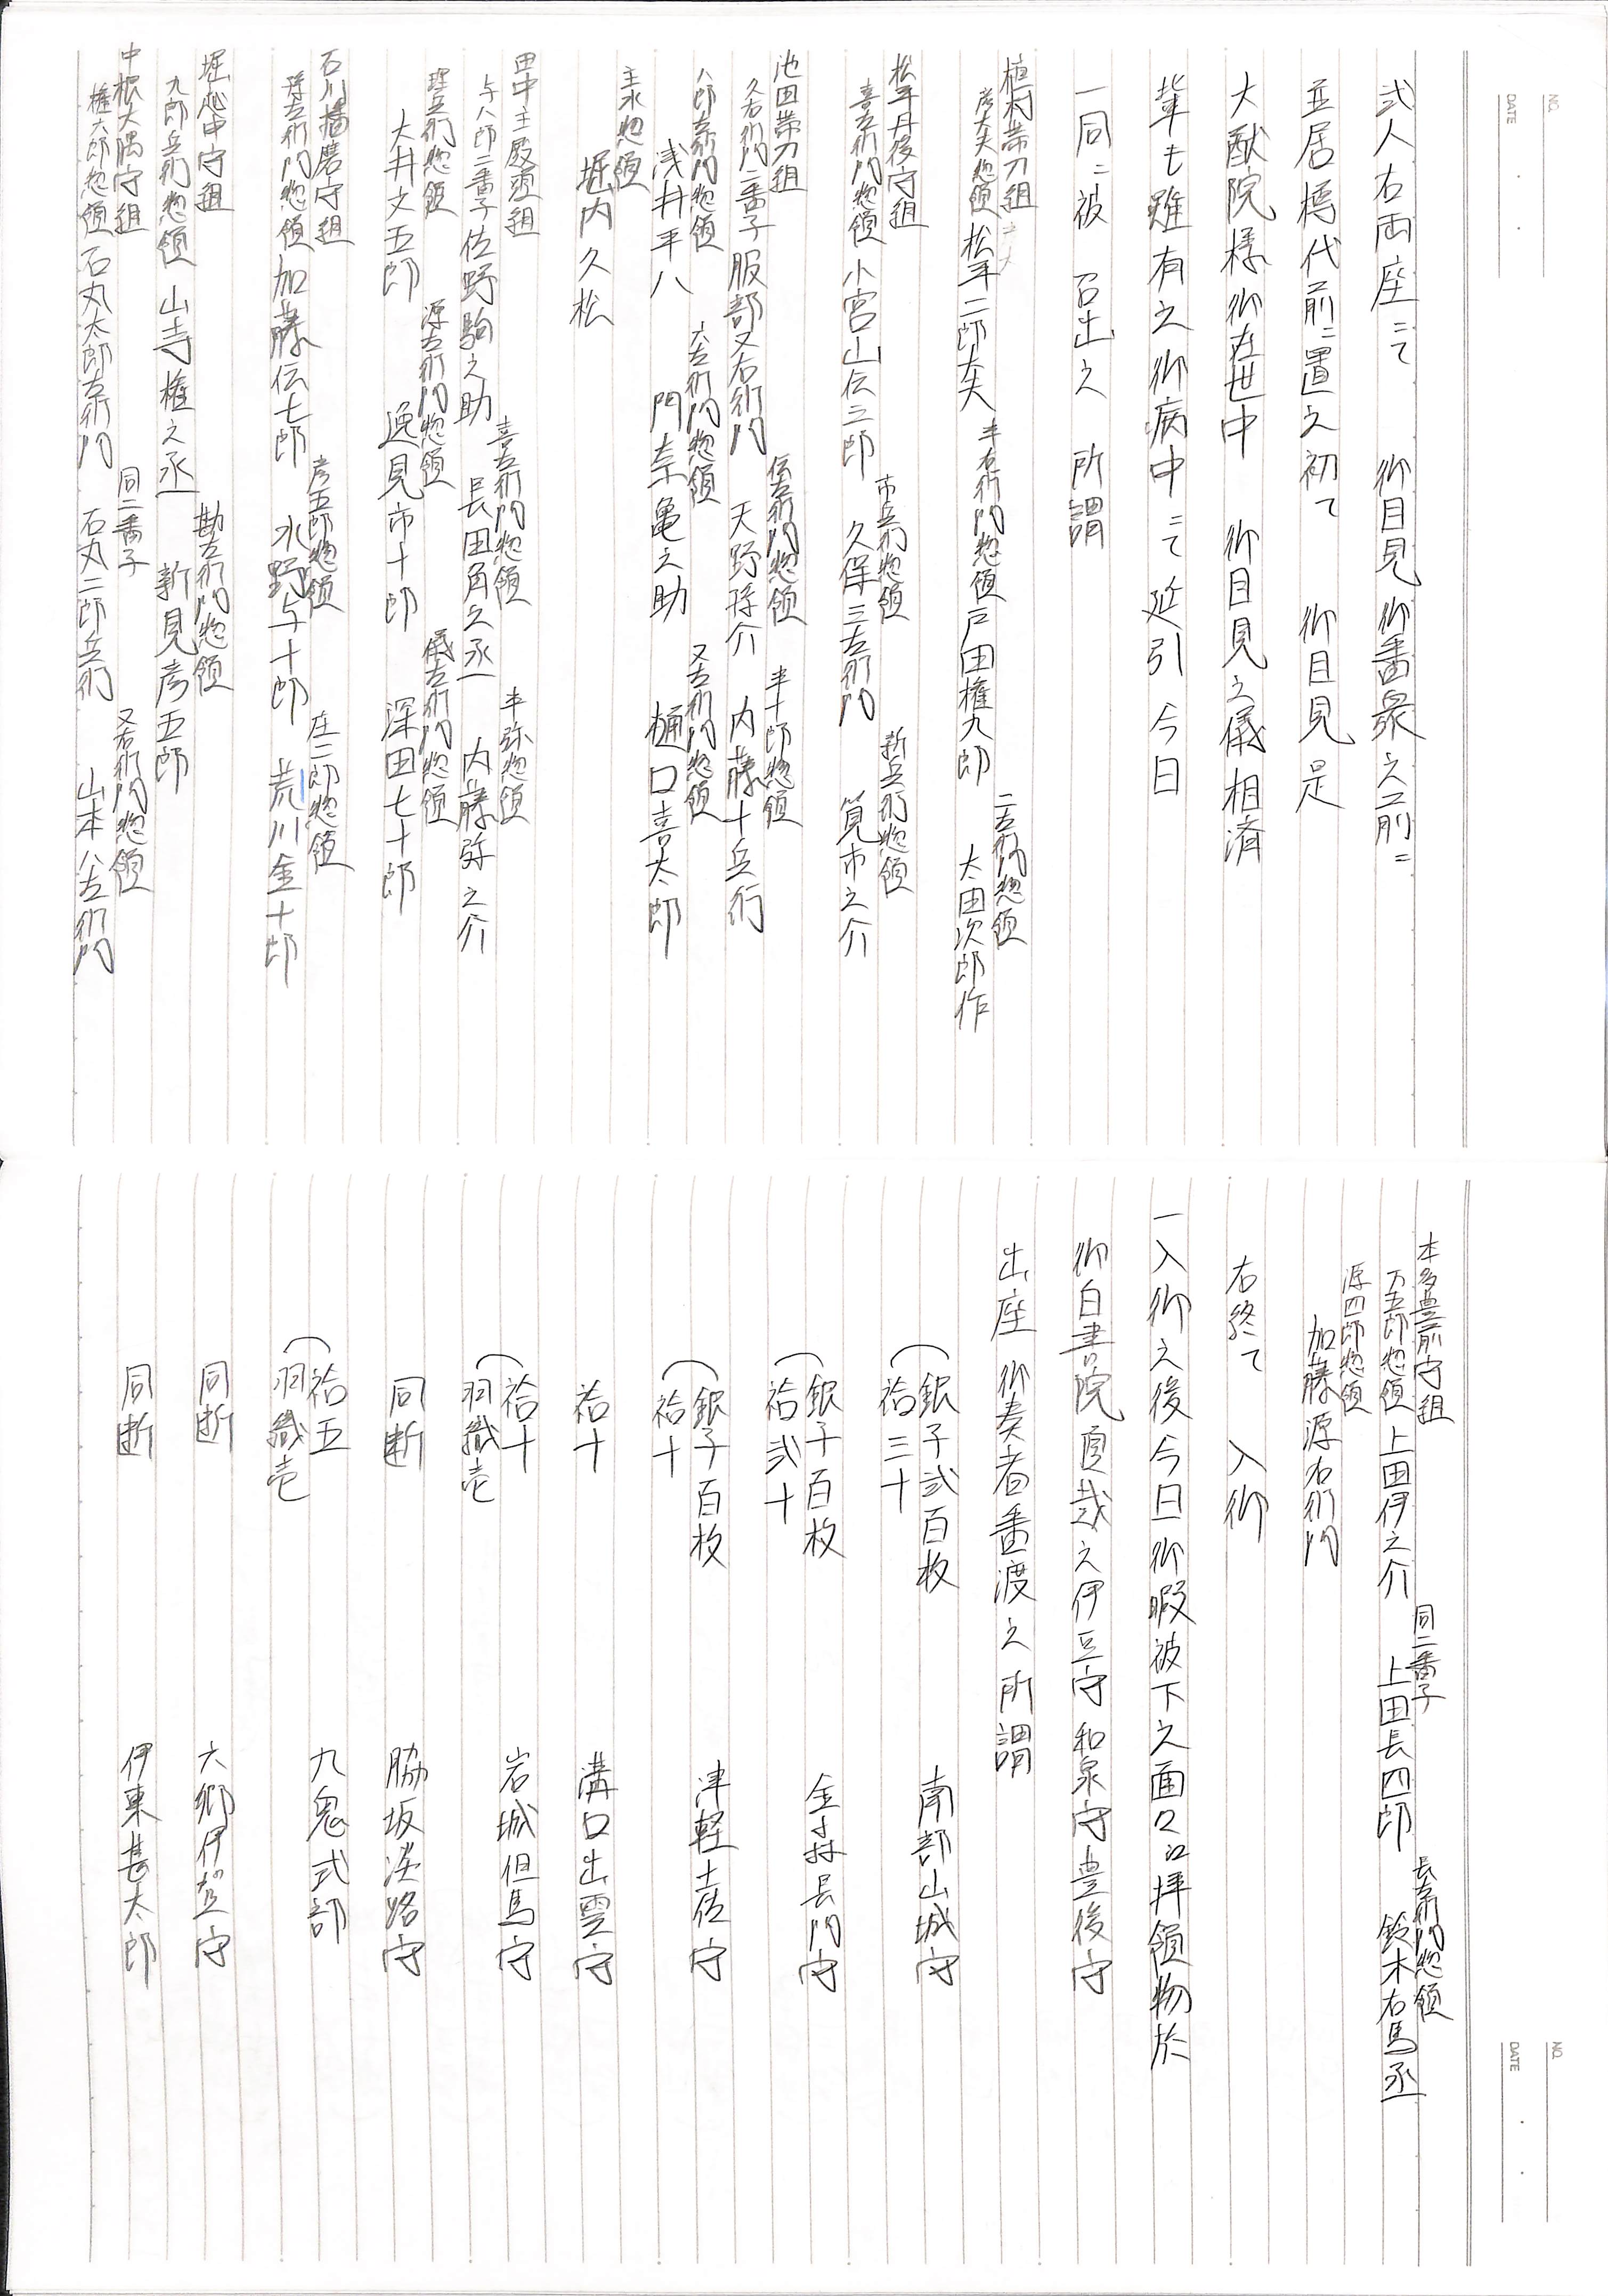 弐人右両座ニて 御目見 御番衆之前ニ
並居樽代前ニ置之初て 御目見是
大猷院様御在世中 御目見之儀相済
輩も雖有之御病中ニて延引今日
一同ニ被 召出之 所謂
植村帯刀組
彦太夫惣領 松平二郎太夫
半右衛門惣領 戸田権九郎
二左衛門惣領 太田次郎作
松平丹後守組
喜左衛門惣領 小宮山伝三郎
市兵衛惣領 久保三左衛門
新兵衛惣領 筧市之介
池田帯刀組
久右衛門二番子 服部又右衛門
伝左衛門惣領 天野孫介
半十郎惣領 内藤十兵衛
八郎左衛門惣領 浅井平八
六左衛門惣領 門奈亀之助
又右衛門惣領 樋口喜太郎
主水惣領 堀内久松
田中主殿頭組
与八郎二番子 佐野駒之助
喜左衛門惣領 長田角之丞
半弥惣領 内藤弥之介
理兵衛惣領 大井文五郎
源左衛門惣領 逸見市十郎
儀左衛門惣領 深田七十郎
石川播磨守組
孫左衛門惣領 加藤伝七郎
彦五郎惣領 水野与十郎
庄二郎惣領 荒川金十郎
堀越中守組
九郎兵衛惣領 山寺権之丞
勘左衛門惣領 新見彦五郎
中根大隅守組
権太郎惣領 石丸太郎左衛門
同二番子 石丸二郎兵衛
又右衛門惣領 山本八左衛門
本多豊前守組
万五郎惣領 上田伊之介
同二番子 上田長四郎
長左衛門惣領 鈴木右馬丞
源四郎惣領
加藤源右衛門
右終て 入御
一入御之後今日御暇被下之面々江拝領物於
御白書院頂戴之伊豆守和泉守豊後守
出座 御奏者番渡之 所謂
銀子弐百枚
袷三十 南部山城守
銀子百枚
袷弐十 金森長門守
銀子百枚
袷十 津軽土佐守
袷十 溝口出雲守
袷十
羽織壱 岩城但馬守
同断 脇坂淡路守
袷五
羽織壱 九鬼式部
同断 六郷伊賀守
同断 伊東甚太郎
NO.
DATE
NO.
DATE